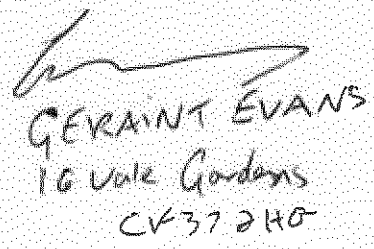 GERAINT EVANS
16 Vale Gardens
CF37 2HG